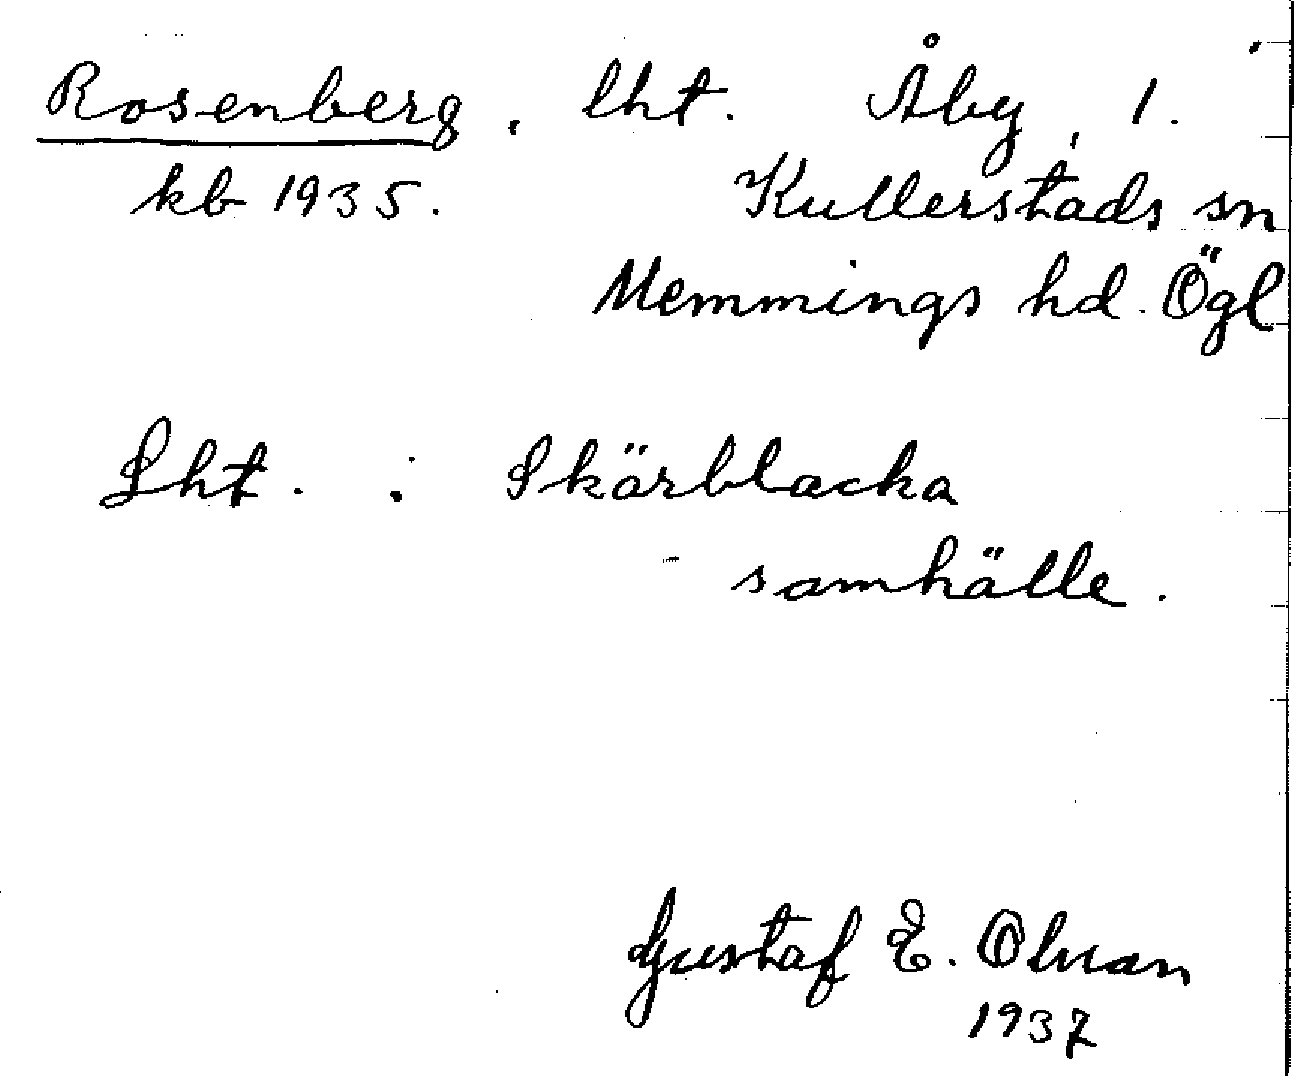 Rosenberg, lht. Åby, 1.
kb 1935. Kullerstads sn
Memmings hd. Ögl
Lht. : Skärblacka
samhälle.
Gustaf E. Olsson
1937